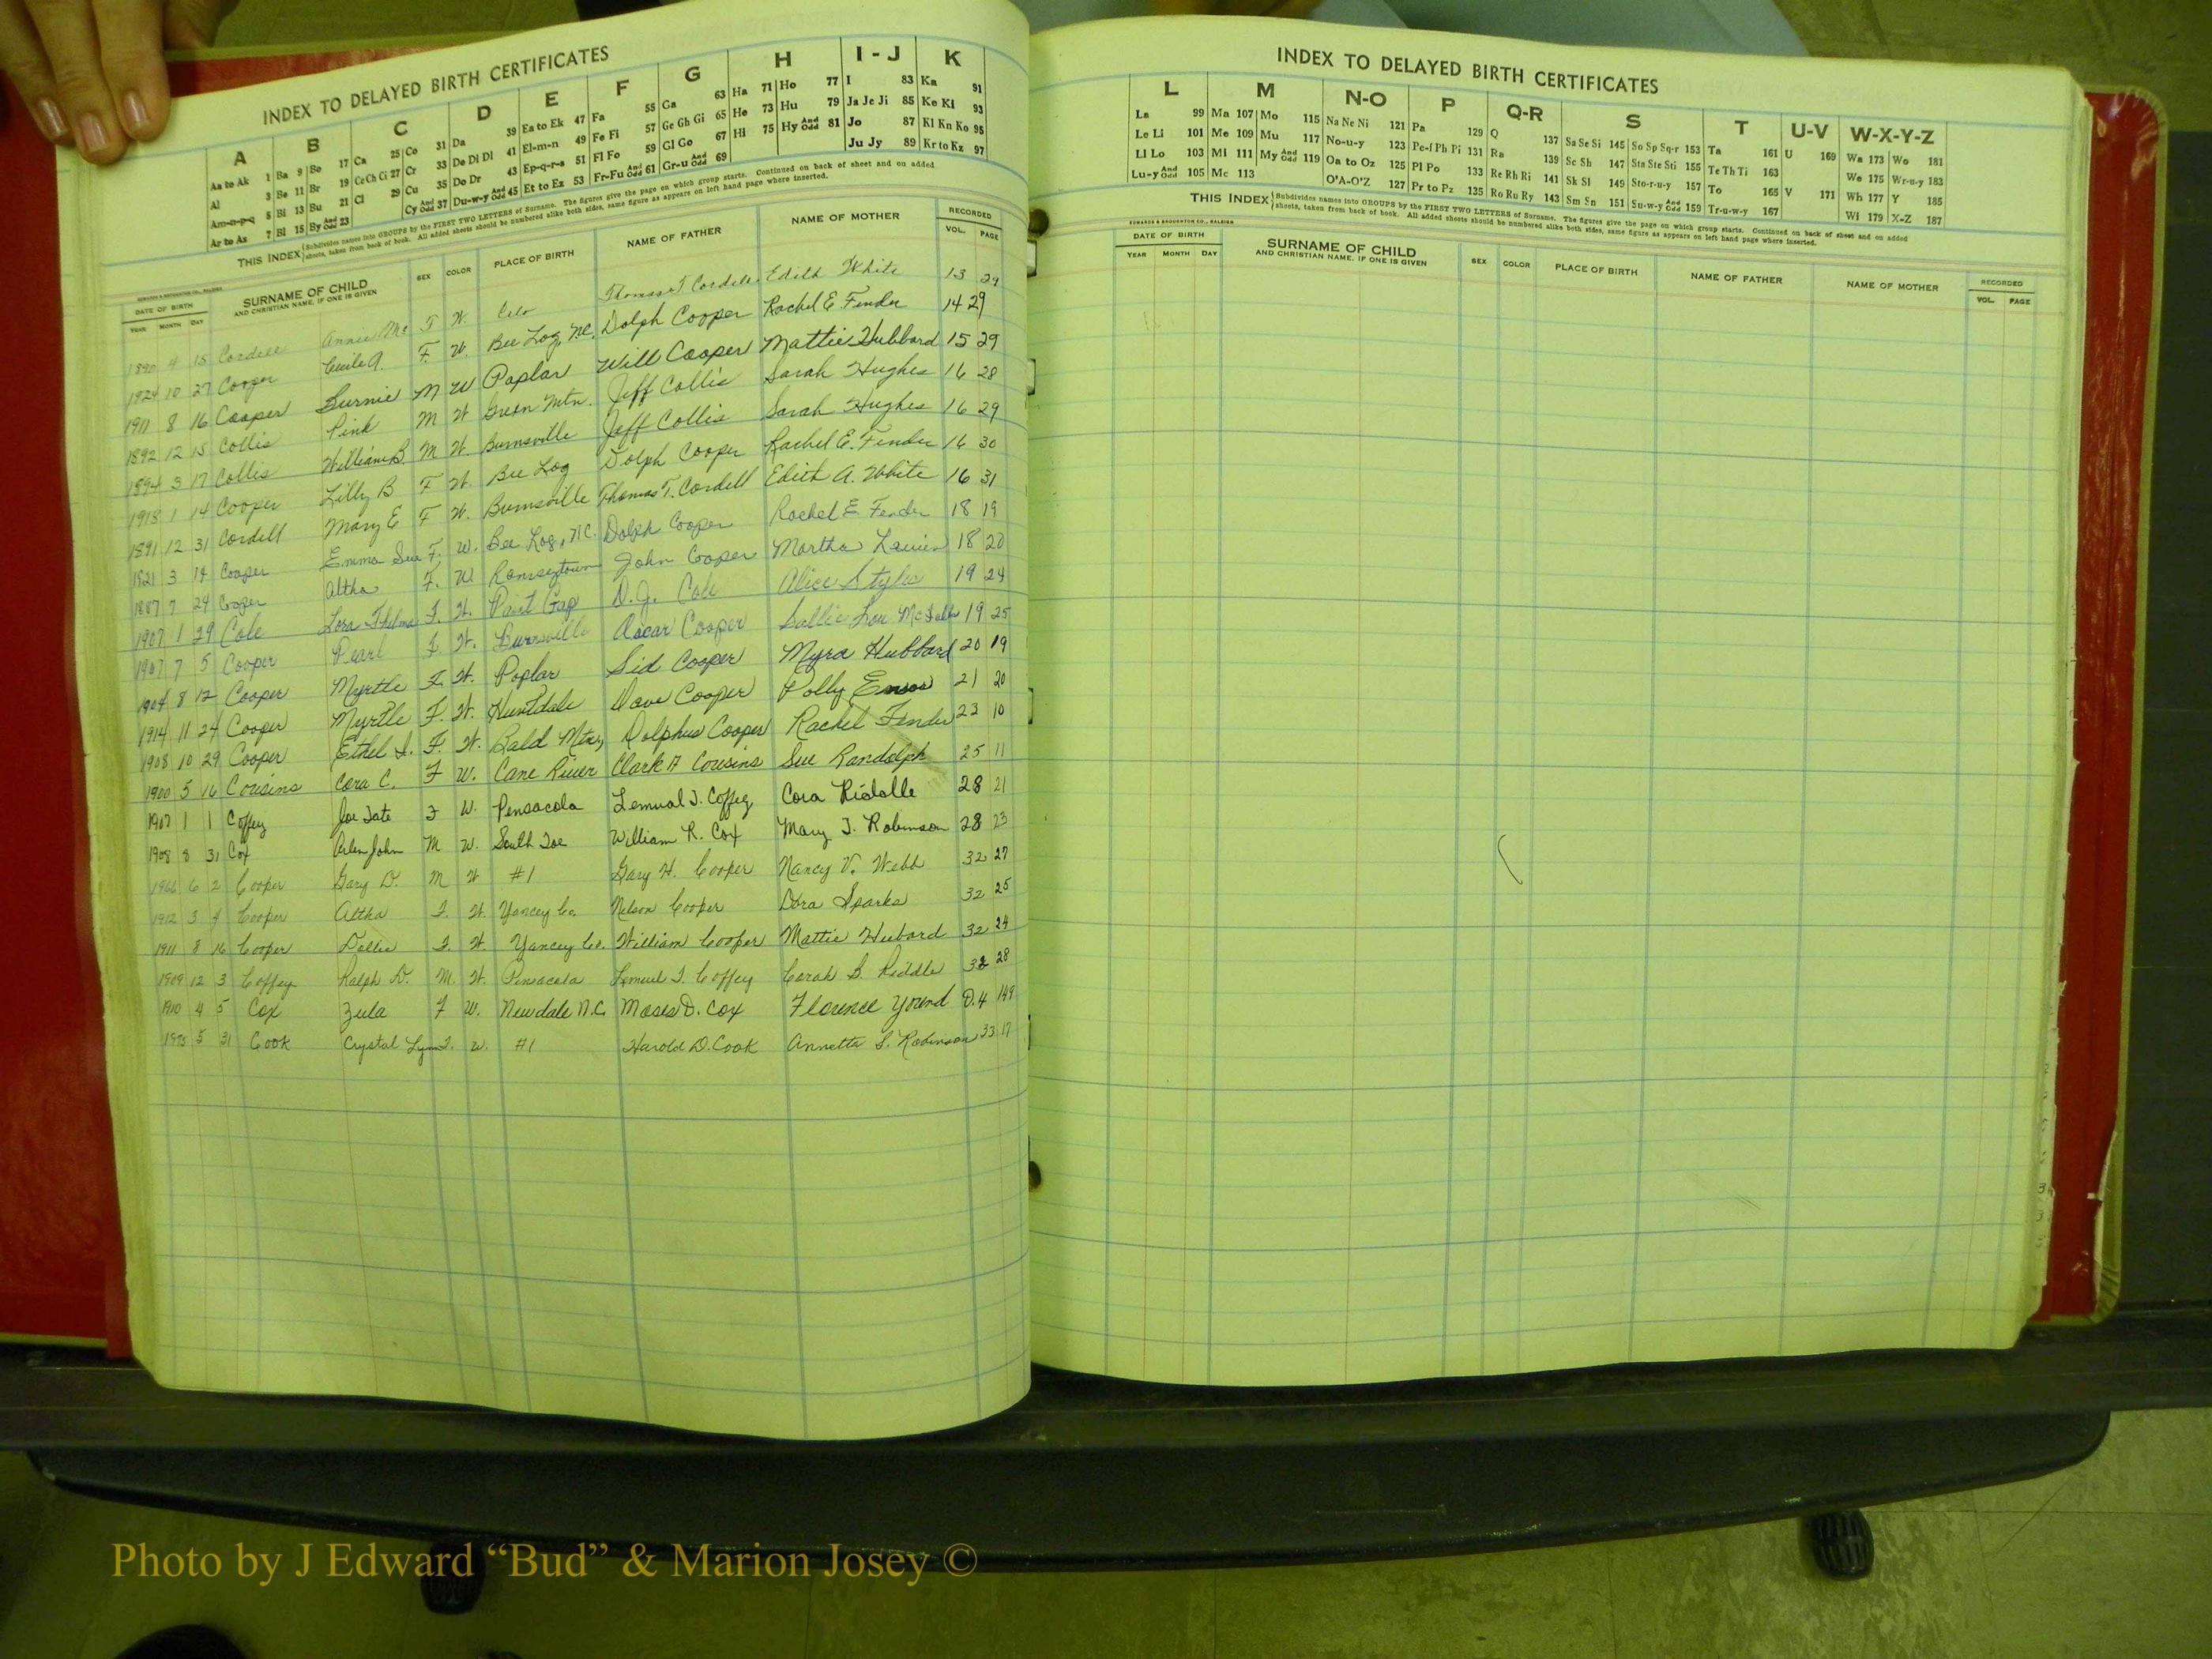 INDEX TO DELAYED BIRTH CERTIFICATES
A B C D E F G H I - J K
Aa to Ak 1 Ba 9 Bo 17 Ca 25 Co 31 Da 39 Ea to Ek 47 Fa 55 Ga 63 Ha 71 Ho 77 I 83 Ka 91
Al 3 Be 11 Br 19 Ce Ch Ci 27 Cr 33 De Di Dl 41 El-m-n 49 Fe Fi 57 Ge Gh Gi 65 He 73 Hu 79 Ja Je Ji 85 Ke Ki 93
Am-n-p-q 5 Bi 13 Bu 21 Cl 29 Cu 35 Do Dr 43 Ep-q-r-s 51 Fl Fo 59 Gl Go 67 Hi 75 Hy And Odd 81 Jo 87 Kl Kn Ko 95
Ar to Az 7 Bl 15 By And Odd 23 Cy And Odd 37 Du-w-y And Odd 45 Et to Ez 53 Fr-Fu And Odd 61 Gr-u And Odd 69 Ju Jy 89 Kr to Kz 97
THIS INDEX Subdivides names into GROUPS by the FIRST TWO LETTERS of Surname. The figures give the page on which group starts. Continued on back of sheet and on added
sheets, taken from back of book. All added sheets should be numbered alike both sides, same figure as appears on left hand page where inserted.
DATE OF BIRTH SURNAME OF CHILD SEX COLOR PLACE OF BIRTH NAME OF FATHER NAME OF MOTHER RECORDED
YEAR MONTH DAY AND CHRISTIAN NAME, IF ONE IS GIVEN VOL. PAGE
1890 4 15 Cordell Annie Mc F W. Celo Thomas T Cordell Edith White 13 29
1924 10 27 Cooper Cecile A. F. W. Bee Log, N.C. Dolph Cooper Rachel E Fender 14 29
1911 8 16 Cooper Burnie M W Poplar Will Cooper Mattie Hubbard 15 29
1892 12 15 Collis Pink M W Green Mtn. Jeff Collis Sarah Hughes 16 28
1894 3 17 Collis William B. M W. Burnsville Jeff Collis Sarah Hughes 16 29
1918 1 14 Cooper Lilly B F W. Bee Log Dolph Cooper Rachel E. Fender 16 30
1891 12 31 Cordell Mary E F W. Burnsville Thomas T. Cordell Edith A. White 16 31
1921 3 14 Cooper Emma Sue F. W. Bee Log, N.C. Dolph Cooper Rachel E. Fender 18 19
1887 7 24 Cooper Altha F. W Ramseytown John Cooper Martha 18 20
1907 1 29 Cole Lora Thelma F. W. Paint Gap D.J. Cole Alice Styles 19 24
1907 7 5 Cooper Pearl F. W. Burnsville Oscar Cooper Sallie Lou 19 25
1904 8 12 Cooper Myrtle F. W. Poplar Sid Cooper Myra Hubbard 20 19
1914 11 24 Cooper Myrtle F. W. Huntdale Dave Cooper Polly 21 20
1908 10 29 Cooper Ethel F. W. Bald Mtn, Dolphus Cooper Rachel Fender 23 10
1900 5 16 Cousins Cora C. F W. Cane River Clark A Cousins Sue Randolph 25 11
1907 1 1 Coffey Joe Tate F W. Pensacola Lemual J. Coffey Cora Riddle 28 21
1908 8 31 Cox Arlen John M W. South Toe William R. Cox Mary J. Robinson 28 23
1966 6 2 Cooper Gary D. M W #1 Gary H. Cooper Nancy V. Webb 32 27
1912 3 4 Cooper Altha F. W. Yancey Co. Nelson Cooper Dora Sparks 32 25
1911 8 16 Cooper Dollie F. W. Yancey Co. William Cooper Mattie Hubard 32 24
1909 12 3 Coffey Ralph D. M. W. Pensacola Lemuel J. Coffey Corah B. Riddle 32 28
1910 4 5 Cox Zula F W. Newdale N.C. Moses D. Cox Florence Yound D.4 149
5 31 Cook Crystal Lynn F. W. #1 Harold D. Cook Annetta S. Robinson 33 17
INDEX TO DELAYED BIRTH CERTIFICATES
L M N-O P Q-R S T U-V W-X-Y-Z
La 99 Ma 107 Mo 115 Na Ne Ni 121 Pa 129 Q 137 Sa Se Si 145 So Sp Sq-r 153 Ta 161 U 169 Wa 173 Wo 181
Le Li 101 Me 109 Mu 117 No-u-y 123 Pe-f Ph Pi 131 Ra 139 Sc Sh 147 Sta Ste Sti 155 Te Th Ti 163 We 175 Wr-u-y 183
Ll Lo 103 Mi 111 My And Odd 119 Oa to Oz 125 Pl Po 133 Re Rh Ri 141 Sk Sl 149 Sto-r-u-y 157 To 165 V 171 Wh 177 Y 185
Lu-y And Odd 105 Mc 113 O'A-O'Z 127 Pr to Pz 135 Ro Ru Ry 143 Sm Sn 151 Su-w-y And Odd 159 Tr-u-w-y 167 Wi 179 X-Z 187
THIS INDEX Subdivides names into GROUPS by the FIRST TWO LETTERS of Surname. The figures give the page on which group starts. Continued on back of sheet and on added
sheets, taken from back of book. All added sheets should be numbered alike both sides, same figure as appears on left hand page where inserted.
EDWARDS & BROUGHTON CO., RALEIGH
DATE OF BIRTH SURNAME OF CHILD SEX COLOR PLACE OF BIRTH NAME OF FATHER NAME OF MOTHER RECORDED
YEAR MONTH DAY AND CHRISTIAN NAME, IF ONE IS GIVEN VOL. PAGE
Photo by J Edward “Bud” & Marion Josey ©